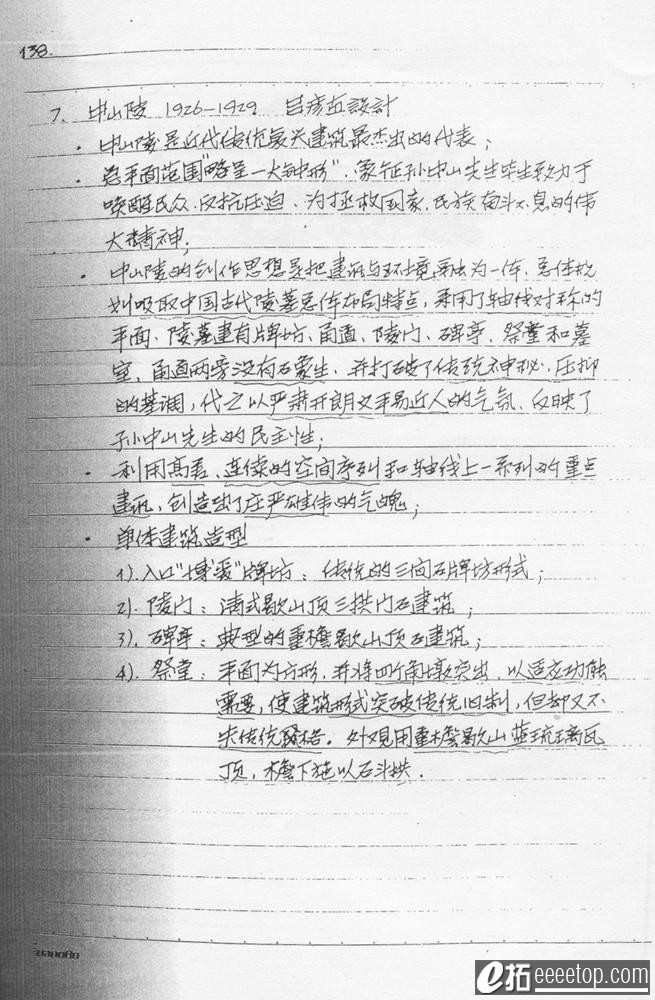 138.
7、中山陵 1926-1929 吕彦直設計
· 中山陵是近代传统复兴建筑最杰出的代表；
· 总平面范围"略呈一大钟形"，象征孙中山先生毕生致力于
唤醒民众、反抗压迫、为拯救国家、民族奋斗不息的伟
大精神；
· 中山陵的创作思想是把建筑与环境融为一体，总体规
划吸取中国古代陵墓总体布局特点，采用了轴线对称的
平面、陵墓建有牌坊、甬道、陵门、碑亭、祭堂和墓
室，甬道两旁没有石象生，并打破了传统神秘、压抑
的基调，代之以严肃开朗又平易近人的气氛，反映了
孙中山先生的民主性；
· 利用高差、连续的空间序列和轴线上一系列的重点
建筑，创造出了庄严雄伟的气魄；
· 单体建筑造型
1）、入口"博爱"牌坊：传统的三间石牌坊形式；
2）、陵门：清式歇山顶三拱门石建筑；
3）、碑亭：典型的重檐歇山顶石建筑；
4）、祭堂：平面为方形，并将四个角墩突出，以适应功能
需要，使建筑形式突破传统旧制，但却又不
失传统风格。外观用重檐歇山蓝琉璃瓦
顶，檐下施以石斗拱．
uangBo
e拓 eeeetop.com